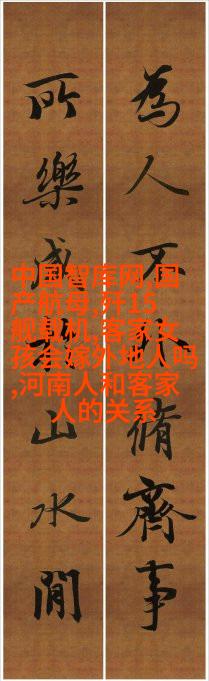 為人不脩齊事
所樂山水閒
中国智库网,国
产航母,歼15
舰载机,客家女
孩会嫁外地人吗
,河南人和客家
人的关系